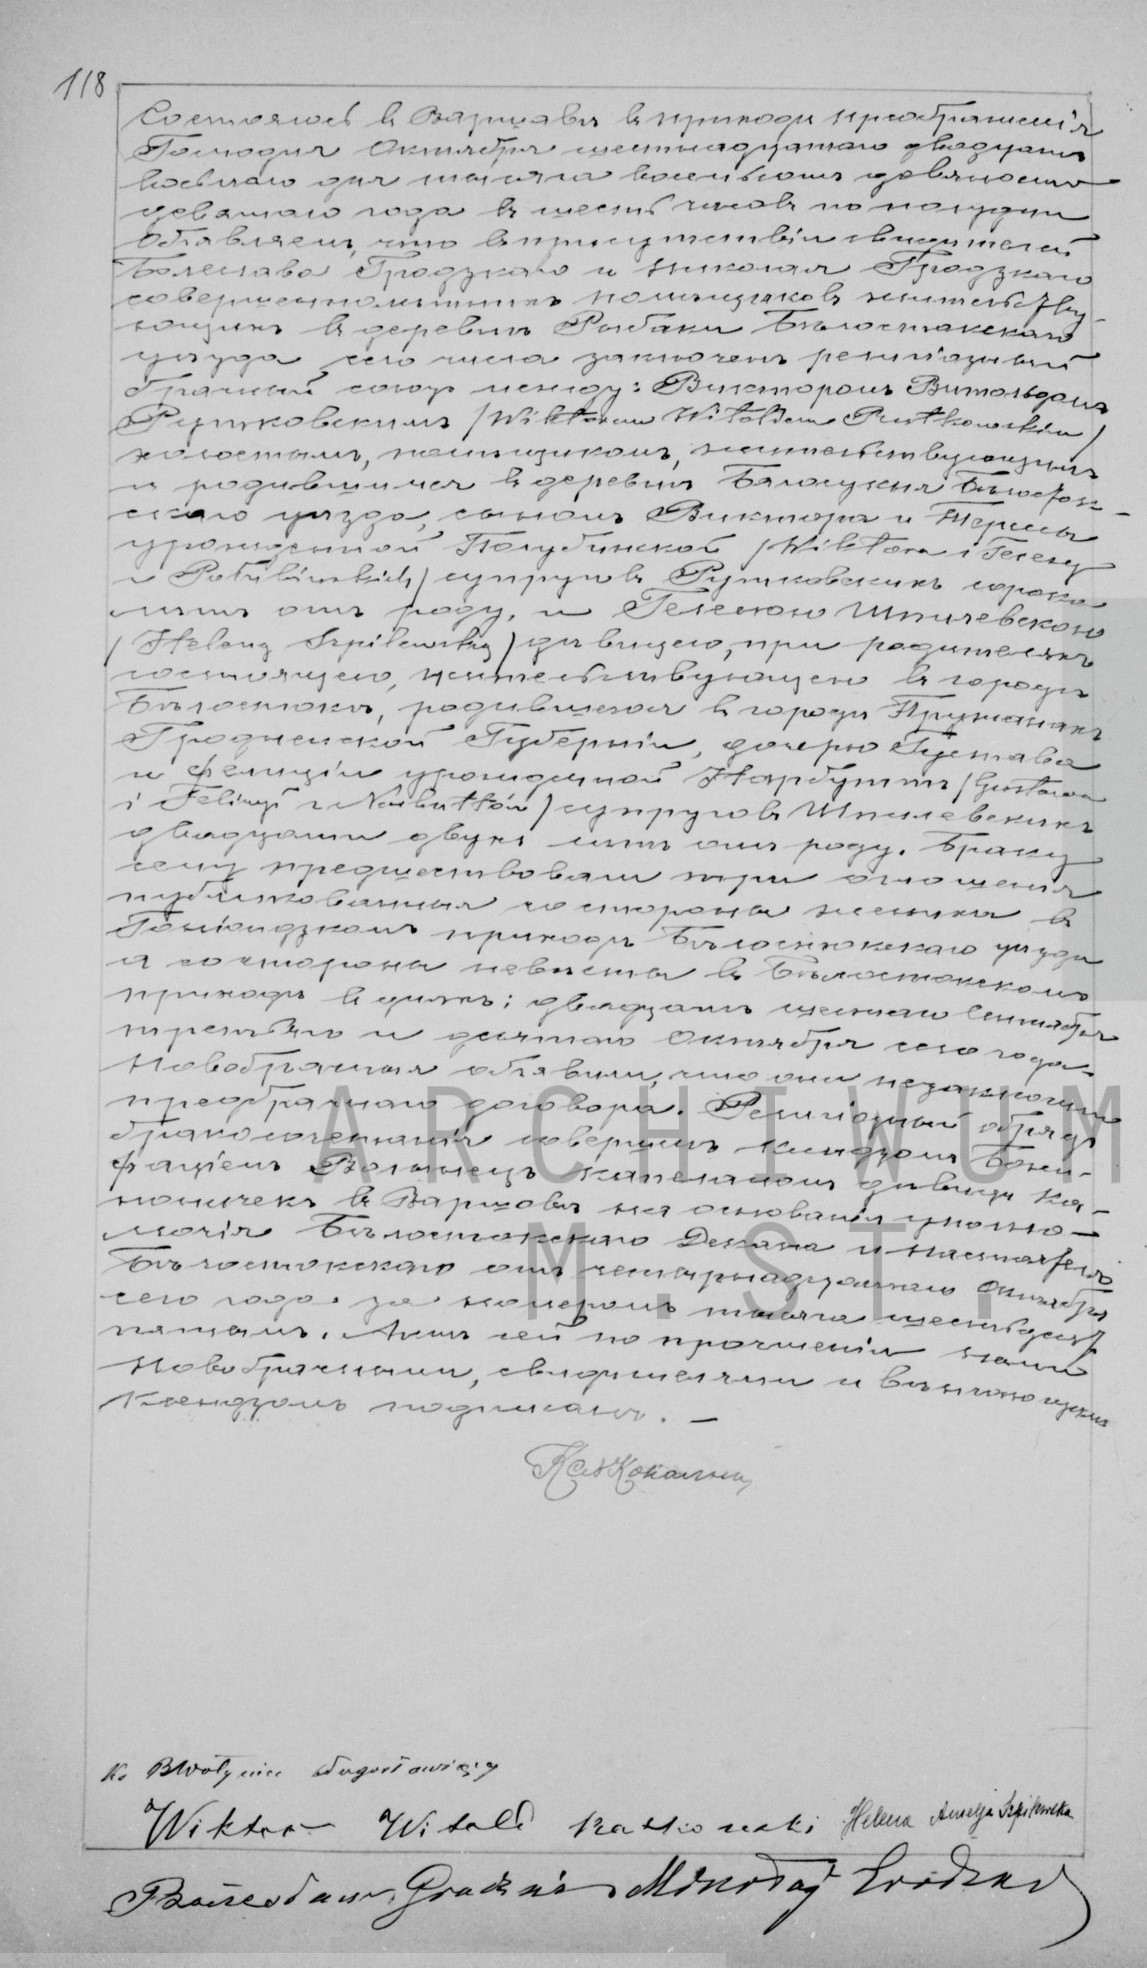 118
Состоялось въ Варшавѣ въ приходѣ Преображенія
Господня Октября шестнадцатаго двадцать
восьмаго дня тысяча восемьсотъ девяносто
девятаго года въ шесть часовъ по полудни
Объявляемъ, что въ присутствіи свидѣтелей
Болеслава Гродзкаго и Николая Гродзкаго
совершеннолѣтнихъ помѣщиковъ жительству-
ющихъ въ деревнѣ Рыбаки Бѣлостокскаго
уѣзда сего числа заключенъ религіозный
брачный союзъ между: Викторомъ Витольдомъ
Рутковскимъ /Wiktorem Witoldem Rutkowskim/
холостымъ, помѣщикомъ, жительствующимъ
и родившимся въ деревнѣ Бялосукня Бѣлосток-
скаго уѣзда, сыномъ Виктора и Терессы
урожденной Полубинской /Wiktora i Teresy
z Połubińskich/ супруговъ Рутковскихъ сорока
лѣтъ отъ роду, и Геленою Шпилевскою
/Heleną Szpilewską/ дѣвицею, при родителяхъ
состоящею, жительствующею въ городѣ
Бѣлостокѣ, родившеюся въ городѣ Пружанахъ
Гродненской Губерніи, дочерью Густава
и Фелиціи урожденной Нарбуттъ /Gustawa
i Felicyi z Narbuttów/ супруговъ Шпилевскихъ
двадцати двухъ лѣтъ отъ роду. Браку
сему предшествовали три оглашенія
публикованныя со стороны жениха въ
Гоніондзкомъ приходѣ Бѣлостокскаго уѣзда
и со стороны невѣсты въ Бѣлостокскомъ
приходѣ въ дняхъ: двадцать шестаго Сентября
третьяго и десятаго Октября сего года.
Новобрачные объявили, что они незаключили
предбрачнаго договора. Религіозный обрядъ
бракосочетанія совершенъ Ксендзомъ Бони-
фаціемъ Волынецъ капеланомъ дѣвицъ Ка-
ноничекъ въ Варшавѣ на основаніи уполно-
мочія Бѣлостокскаго Декана и Настоятеля
Бѣлостокскаго отъ четырнадцатаго Октября
сего года за номеромъ тысяча шестьдесятъ
пятымъ. Актъ сей по прочтеніи нами
Новобрачными, свидѣтелями и вѣнчающимъ
Ксендзомъ подписанъ. —
Ks B Wołyniec
Wiktor Witold Rutkowski Helena Amelja Szpilewska
Bolesław Grodzki Mikołaj Grodzki